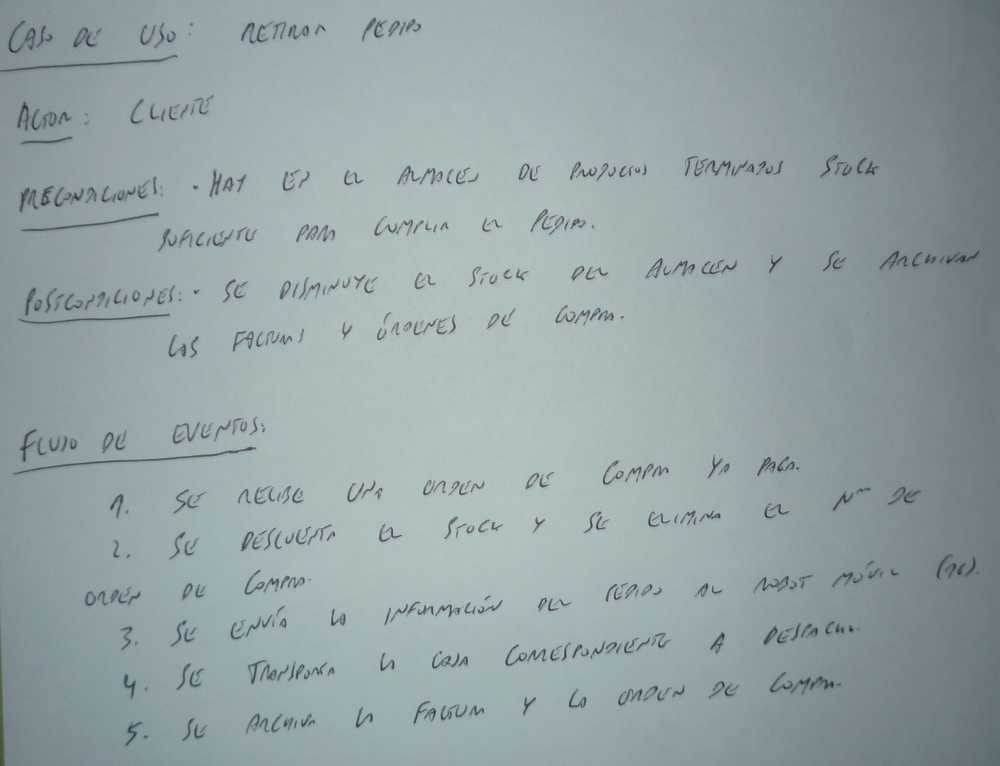 CASO DE USO: RETIRAR PEDIDO
ACTOR: CLIENTE
PRECONDICIONES: · HAY EN EL ALMACEN DE PRODUCTOS TERMINADOS STOCK
SUFICIENTE PARA CUMPLIR EL PEDIDO.
POSTCONDICIONES: · SE DISMINUYE EL STOCK DEL ALMACEN Y SE ARCHIVAN
LAS FACTURAS Y ÓRDENES DE COMPRA.
FLUJO DE EVENTOS:
1. SE RECIBE UNA ORDEN DE COMPRA YA PAGA.
2. SE DESCUENTA EL STOCK Y SE ELIMINA EL Nº DE
ORDEN DE COMPRA.
3. SE ENVÍA LA INFORMACIÓN DEL PEDIDO AL ROBOT MÓVIL
4. SE TRANSPORTA LA CAJA CORRESPONDIENTE A DESPACHO.
5. SE ARCHIVA LA FACTURA Y LA ORDEN DE COMPRA.